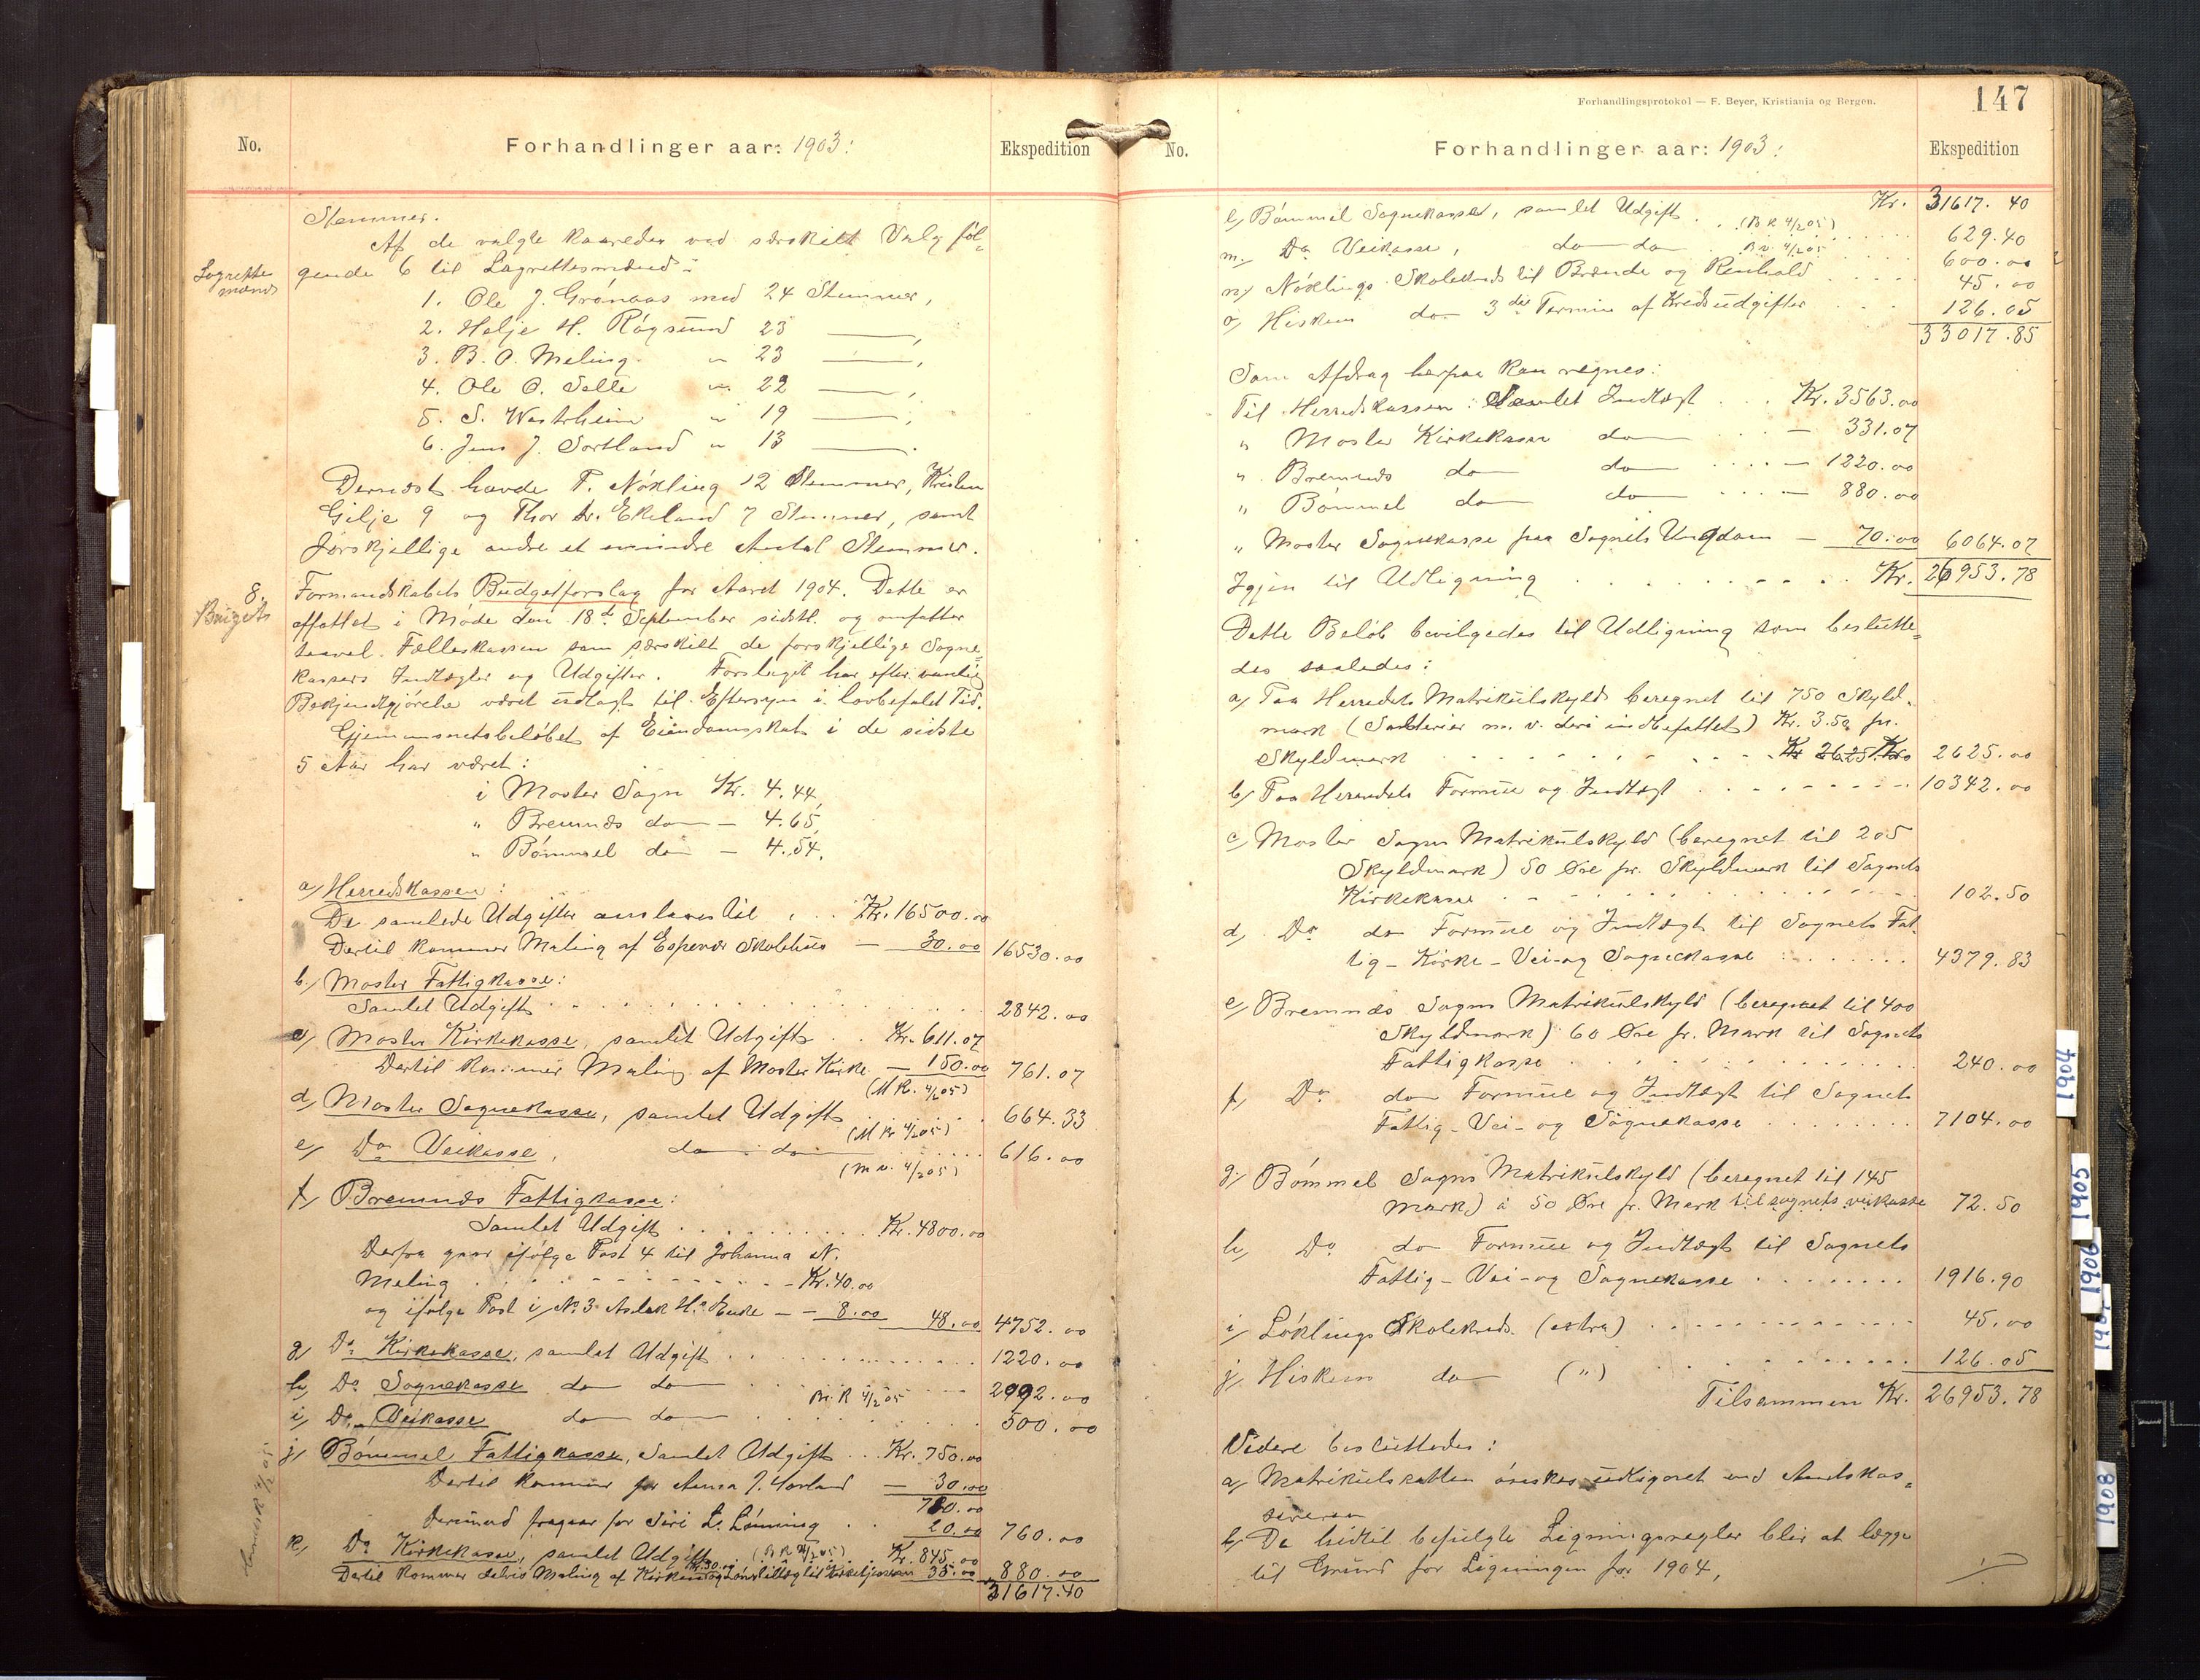 No.
Forhandlinger aar: 1903.
Ekspedition
Stemmer.
Af de valgte kaaredes ved særskilt Valg føl-
Lagrette
mænd
gende 6 til Lagrettesmænd:
1. Ole J. Grønaas med 24 Stemmer,
2. Helje H. Røgsund 23 —,
3. B. O. Meling " 23 —,
4. Ole O. Sælle " 22 —,
5. S. Wastvheim " 19 —,
6. Jens J. Sortland " 13 —.
Dernæst havde T. Nøkling 12 Stemmer, Kristen
Gilje 9 og Thor Ekeland 7 Stemmer, samt
forskjellige andre et mindre Antal Stemmer.
8.
Budgets
Formandskabets Budgetforslag for Aaret 1904. Dette er
affattet i Møde den 18de September sidstl. og omfatter
saavel Fælleskassen som særskilt de forskjellige Sogne-
kassers Indtægter og Udgifter. Forslaget har efter vanlig
Bekjendtgjørelse været udlagt til Eftersyn i lovbefalet Tid.
Gjennemsnitsbeløbet af Eiendomsskat i de sidste
5 Aar har været:
i Moster Sogn Kr. 4.44,
" Bremnæs do — 4.65,
" Bømmel do — 4.54.
a) Herredskassen:
De samlede Udgifter anslaaes til . . . Kr. 16500.00
Dertil kommer Maling af Espevær Skolehus — 30.00 16530.00
b.) Moster Fattigkasse:
Samlet Udgift . . . 2842.00
c) Moster Kirkekasse, samlet Udgift . . Kr. 611.07
Dertil kommer Maling af Moster Kirke — 150.00 761.07
(M K. 4/2 05)
d) Moster Sognekasse, samlet Udgift . . . 664.33
(M Kr 4/2 05)
e) Do Veikasse, do do . . . 616.00
(m v. 4/2 05)
f) Bremnæs Fattigkasse:
Samlet Udgift . . . Kr. 4800.00
Derfra gaar ifølge Post 4 til Johanna N.
Meling . . . - Kr. 40.00
og ifølge Post i, No 3 Aslak H. — 8.00 48.00 4752.00
g) Do Kirkekasse, samlet Udgift . . . 1220.00
h) Do Sognekasse do do . . . 2992.00
Br. K 4/2 05
i) Do Veikasse do do . . . 500.00
j) Bømmel Fattigkasse, samlet Udgift . . Kr. 750.00
Dertil kommer for Anna J. Hovland — 30.00
780.00
Derimod fragaar for Siri L. Lønning . . 20.00 760.00
k) Do Kirkekasse, samlet Udgift (B K 4/2 05) Kr. 845.00
Dertil kommer delvis Maling af Kirken Kr. 30.00 og Lønstillæg til Kirketjeneren 35.00 880.00
31617.40
Forhandlingsprotokol — F. Beyer, Kristiania og Bergen.
147
No.
Forhandlinger aar: 1903.
Ekspedition
Kr. 31617.40
l) Bømmel Sognekasse, samlet Udgift . (B K 4/2 05) . . . 629.40
m. Do Veikasse, do do . B v. 4/2 05 . . . 600.00
n) Nøklings Skolekreds til Brænde og Renhold . . . 45.00
o) Hisken do 3die Termin af Kredsudgifter . . . 126.05
33017.85
Som Afdrag herpaa kan regnes:
Til Herredskassen: Samlet Indtægt . . . Kr. 3563.00
" Moster Kirkekasse do . . . — 331.07
" Bremnæs do do . . . — 1220.00
" Bømmel do do . . . — 880.00
" Moster Sognekasse fra Sognets Ungdom — 70.00 6064.07
Igjen til Udligning . . . Kr. 26953.78
Dette Beløb bevilgedes til Udligning som beslutte-
des saaledes:
a) Paa Herredets Matrikulskyld beregnet til 750 Skyld-
mark (Salterier m. v. deri indbefattet) Kr. 3.50 pr.
Skyldmark . . . Kr 2625.00 2625.00
b) Paa Herredets Formue og Indtægt . . . 10342.00
c) Moster Sogns Matrikulskyld (beregnet til 205
Skyldmark) 50 Øre pr. Skyldmark til Sognets
Kirkekasse . . . 102.50
d) Do do Formue og Indtægt til Sognets Fat-
tig- Kirke- Vei- og Sognekasse . . . 4379.83
e) Bremnæs Sogns Matrikulskyld (beregnet til 400
Skyldmark) 60 Øre pr. Mark til Sognets
Fattigkasse . . . 240.00
f) Do do Formue og Indtægt til Sognets
Fattig- Vei- og Sognekasse . . . 7104.00
g.) Bømmel Sogns Matrikulskyld (beregnet til 145
Mark) à 50 Øre pr. Mark til sognets veikasse 72.50
h) Do do Formue og Indtægt til Sognets
Fattig- Vei- og Sognekasse . . . 1916.90
i) Løklings Skolekreds. (extra) . . . 45.00
j) Hisken do (") . . . 126.05
Tilsammen Kr. 26953.78
Videre besluttedes:
a) Matrikulskatten ønskes udlignet ved Amtskas-
sereren
b) De hidtil befulgte Ligningsregler blir at lægge
til Grund for Ligningen for 1904,
1904
1905
1906
1908